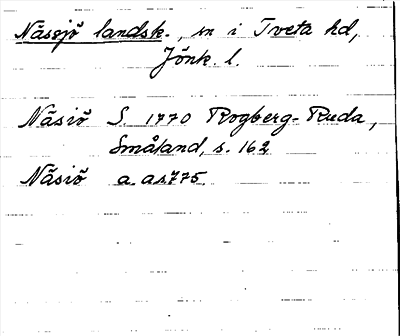 Nässjö landsk., sn i Tveta hd,
Jönk. l.
Näsiö S. 1770 Rogberg-Ruda,
Småland, s. 162
Näsiö a. a. s. 775.